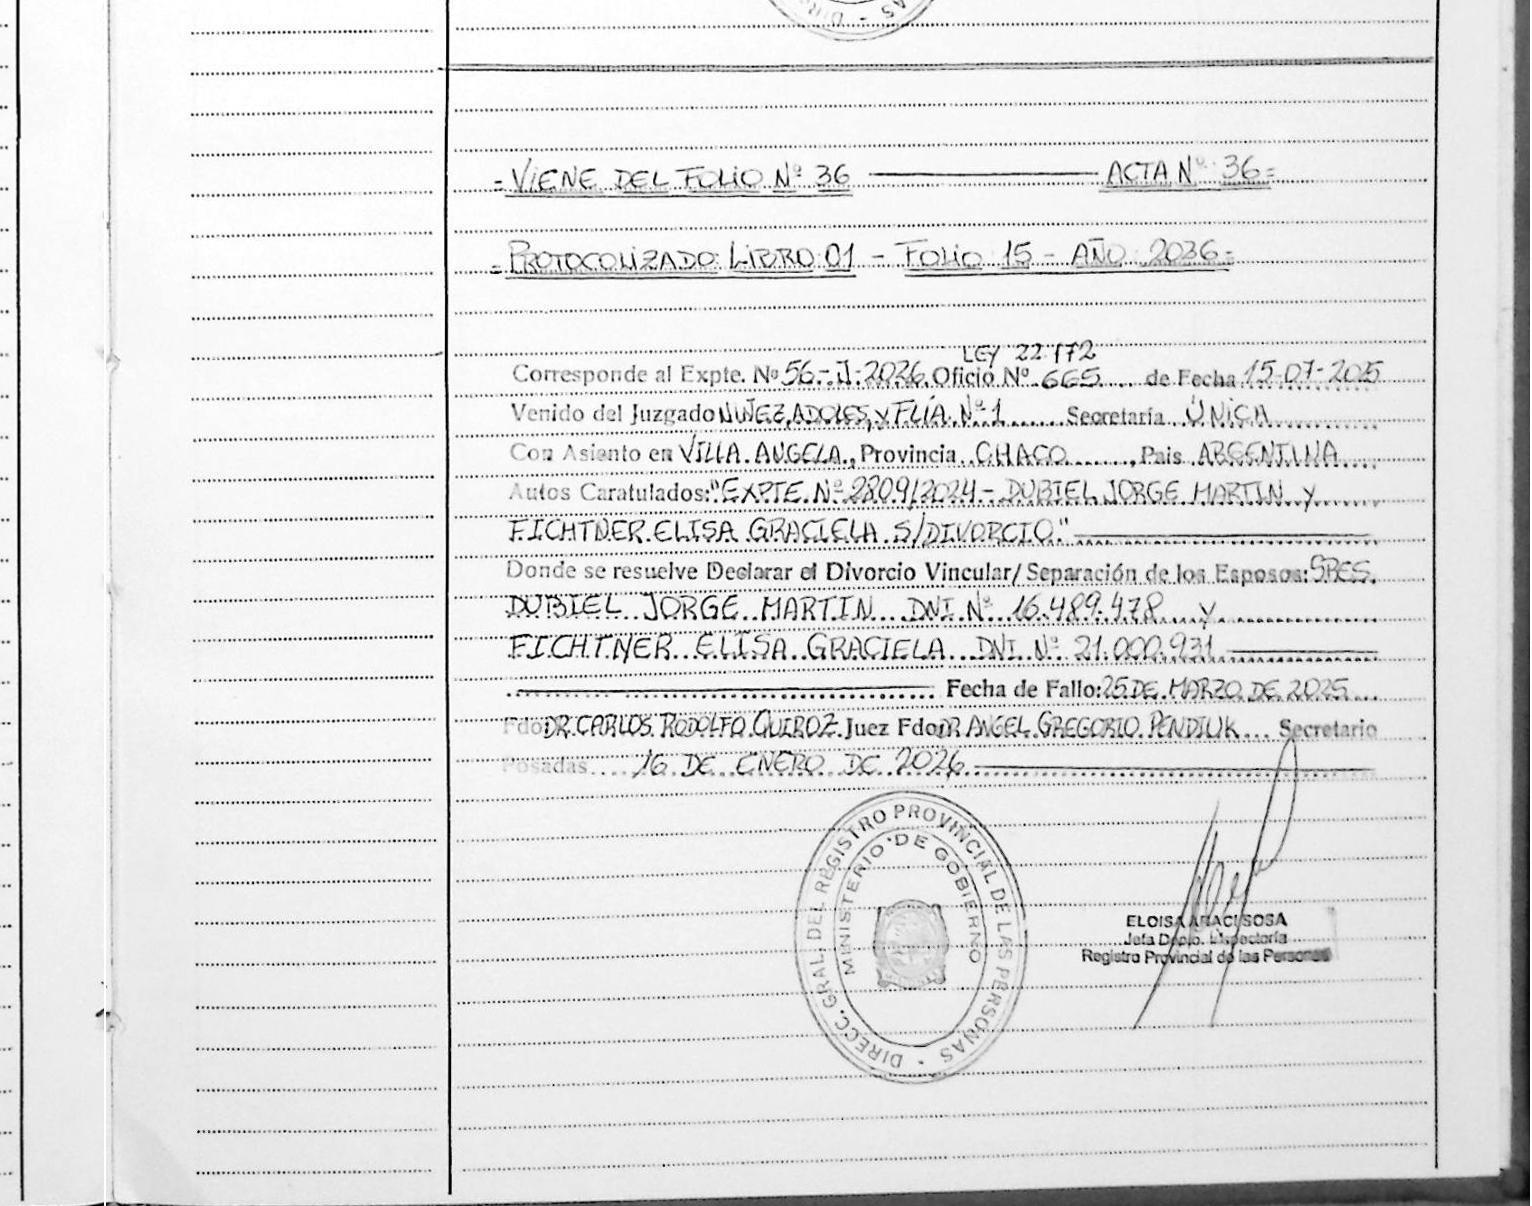 DIR
-VIENE DEL FOLIO Nº 36 ACTA Nº 36=
-PROTOCOLIZADO: LIBRO: 01 - FOLIO: 15 - AÑO: 2036=
LEY 22172
Corresponde al Expte. Nº 56-J-2026 Oficio Nº 665 de Fecha 15-07-2025
Venido del Juzgado NIÑEZ, ADOLES, y FLÍA. Nº 1 Secretaría ÚNICA
Con Asiento en VILLA ANGELA, Provincia CHACO, Pais ARGENTINA
Autos Caratulados: "EXPTE. Nº 2809/2024 - DUBIEL JORGE MARTIN y
FICHTNER ELISA GRACIELA S/DIVORCIO"
Donde se resuelve Declarar el Divorcio Vincular/ Separación de los Esposos: SRES.
DUBIEL JORGE MARTIN DNI Nº 16.489.478 y
FICHTNER ELISA GRACIELA DNI Nº 21.000.931
Fecha de Fallo: 25 DE MARZO DE 2025
Fdo DR. CARLOS RODOLFO QUIROZ Juez Fdo DR ANGEL GREGORIO PENDIUK Secretario
Posadas 16 DE ENERO DE 2026
DIRECC. GRAL. DEL REGISTRO PROVINCIAL DE LAS PERSONAS
MINISTERIO DE GOBIERNO
ELOISA ARACI SOSA
Jefa Depto. Inspectoría
Registro Provincial de las Personas